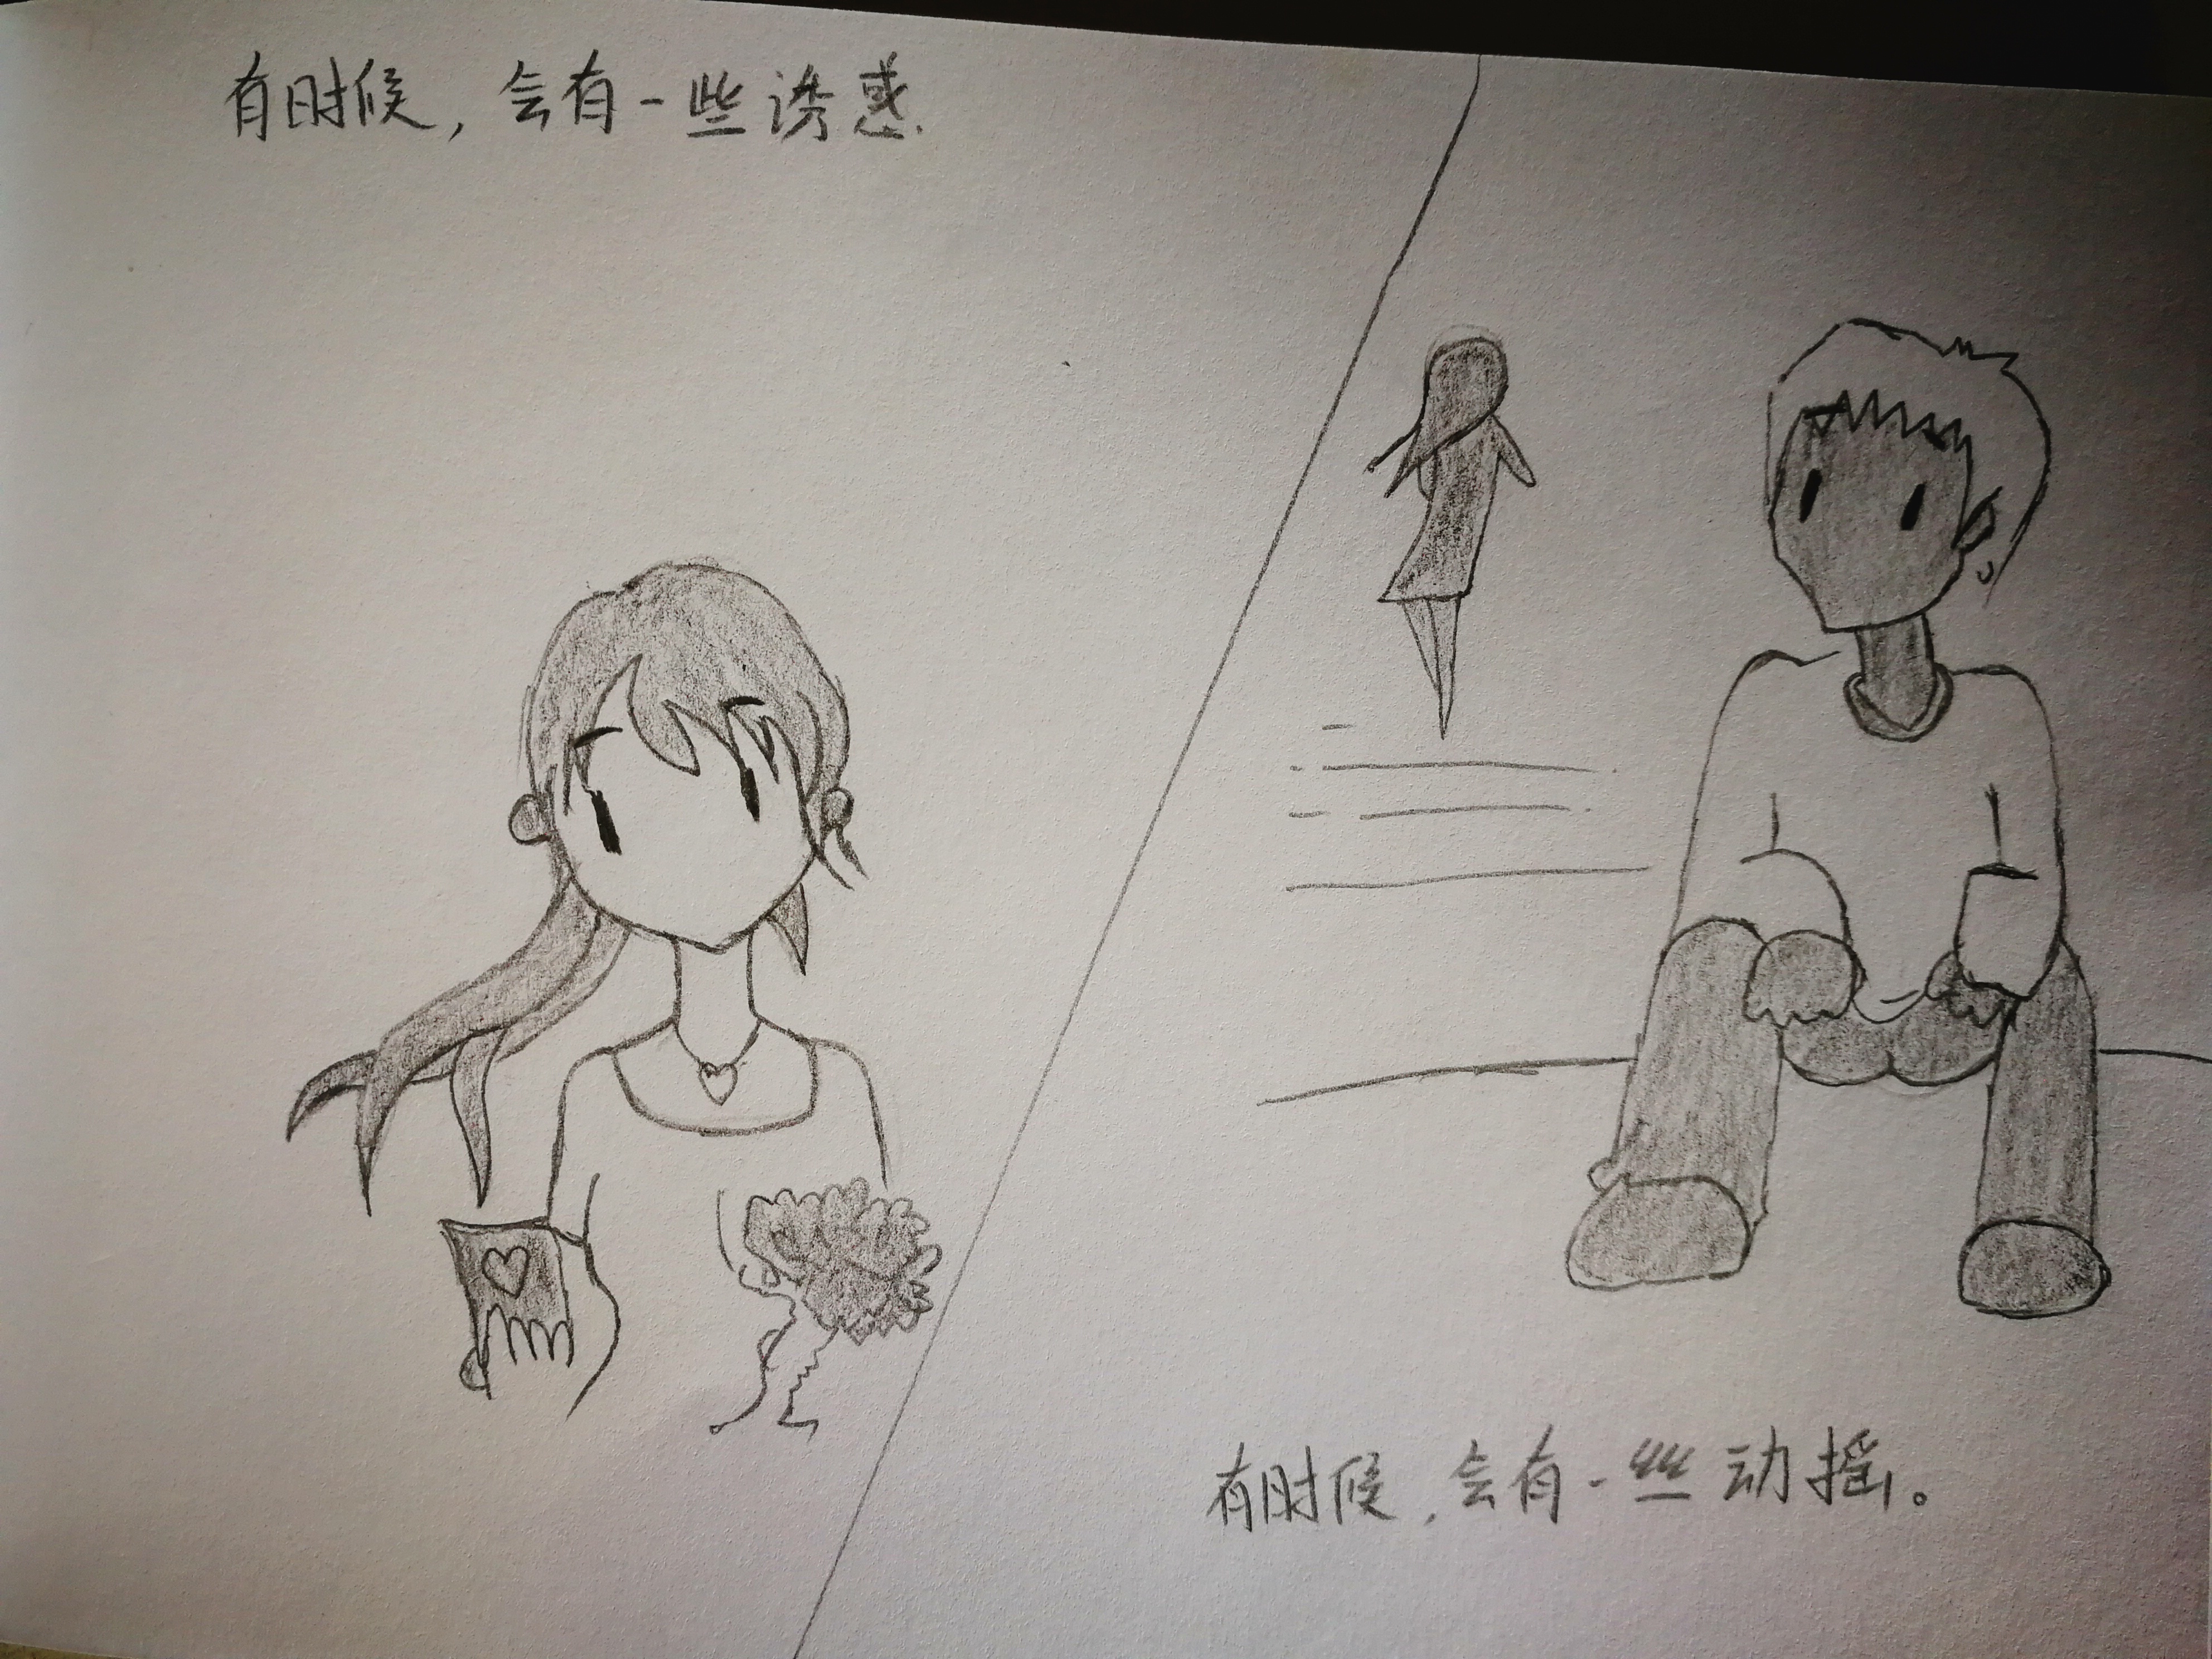 有时候，会有一些诱惑.
有时候，会有一些动摇。